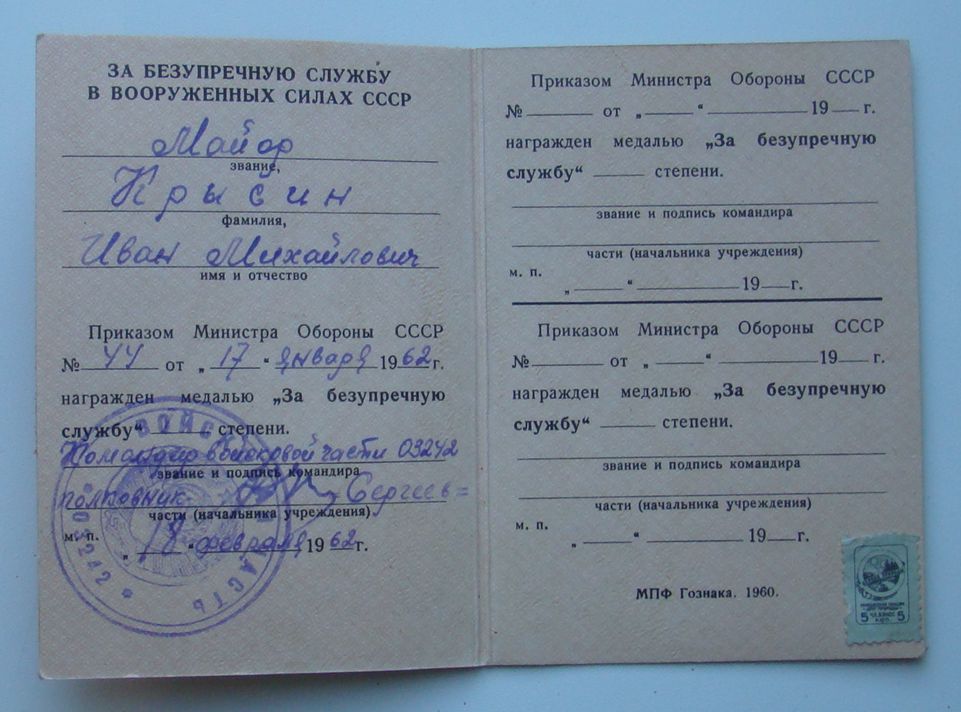 ЗА БЕЗУПРЕЧНУЮ СЛУЖБУ
В ВООРУЖЕННЫХ СИЛАХ СССР
Майор
звание,
Крысин
фамилия,
Иван Михайлович
имя и отчество
Приказом Министра Обороны СССР
№ 44 от „17“ января 1962 г.
награжден медалью „За безупречную
службу“ степени.
Командир войсковой части 03242
звание и подпись командира
полковник Сергеев
части (начальника учреждения)
м. п.
„18“ февраля 1962 г.
ВОЙСКОВАЯ ЧАСТЬ
* 03242 *
Приказом Министра Обороны СССР
№ от „ “ 19 г.
награжден медалью „За безупречную
службу“ степени.
звание и подпись командира
части (начальника учреждения)
м. п.
„ “ 19 г.
Приказом Министра Обороны СССР
№ от „ “ 19 г.
награжден медалью „За безупречную
службу“ степени.
звание и подпись командира
части (начальника учреждения)
м. п.
„ “ 19 г.
МПФ Гознака. 1960.
5 5
коп.